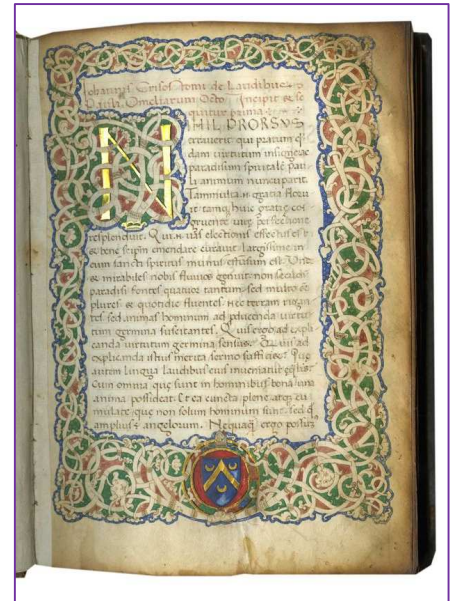 Johannis Crisostomi de Laudibus
Pauli Omeliarum Octo Incipit & se
quitur prima
NIHIL PRORSVS
erraverit qui pratum q̄
dam virtutum insigne ac
paradisum spiritalē Pau
li animum nuncuparit.
gratia floru
it
perfectione
resplenduit. electionis effectus est
se bene emendare curavit largissime in
eum sancti spiritus munus effusum est. Unde
se mirabiles nobis fluvios genuit non secus ac
paradisi fontes quatuor tantum sed multo &
plures & quotidie fluentes. Nec terram rigan
tes sed animas hominum ad producenda virtu
tum germina suscitantes. Quis ergo ad expli
canda virtutum germina
explicanda istius merita sermo sufficiet. Que
autem lingua laudibus eius inveniatur eqlis.
Cum omnia que sunt in hominibus bona una
anima possideat. Et ea cuncta plene. atqz cu
mulate. que non solum hominum sunt. sed qd
amplius ē angelorum. Nequaq̄ ergo